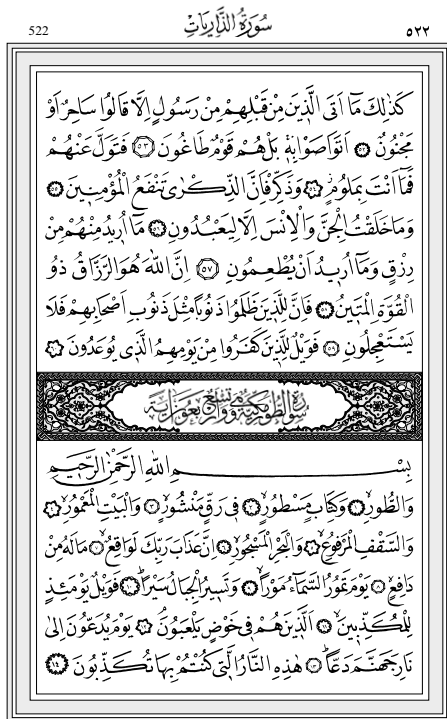 522 سُورَةُ الذَّارِيَاتِ ٥٢٢
كَذٰلِكَ مَٓا اَتَى الَّذ۪ينَ مِنْ قَبْلِهِمْ مِنْ رَسُولٍ اِلَّا قَالُوا سَاحِرٌ اَوْ
مَجْنُونٌ ﴿٥٢﴾ اَتَوَاصَوْا بِه۪ بَلْ هُمْ قَوْمٌ طَاغُونَ ﴿٥٣﴾ فَتَوَلَّ عَنْهُمْ
فَمَٓا اَنْتَ بِمَلُومٍ ﴿٥٤﴾ وَذَكِّرْ فَاِنَّ الذِّكْرٰى تَنْفَعُ الْمُؤْمِن۪ينَ ﴿٥٥﴾
وَمَا خَلَقْتُ الْجِنَّ وَالْاِنْسَ اِلَّا لِيَعْبُدُونِ ﴿٥٦﴾ مَٓا اُر۪يدُ مِنْهُمْ مِنْ
رِزْقٍ وَمَٓا اُر۪يدُ اَنْ يُطْعِمُونِ ﴿٥٧﴾ اِنَّ اللّٰهَ هُوَ الرَّزَّاقُ ذُو
الْقُوَّةِ الْمَت۪ينُ ﴿٥٨﴾ فَاِنَّ لِلَّذ۪ينَ ظَلَمُوا ذَنُوبًا مِثْلَ ذَنُوبِ اَصْحَابِهِمْ فَلَا
يَسْتَعْجِلُونِ ﴿٥٩﴾ فَوَيْلٌ لِلَّذ۪ينَ كَفَرُوا مِنْ يَوْمِهِمُ الَّذ۪ي يُوعَدُونَ ﴿٦٠﴾
سورة الطور مكية وهي تسع واربعون اية
بِسْمِ اللّٰهِ الرَّحْمٰنِ الرَّح۪يمِ
وَالطُّورِ ﴿١﴾ وَكِتَابٍ مَسْطُورٍ ﴿٢﴾ ف۪ي رَقٍّ مَنْشُورٍ ﴿٣﴾ وَالْبَيْتِ الْمَعْمُورِ ﴿٤﴾
وَالسَّقْفِ الْمَرْفُوعِ ﴿٥﴾ وَالْبَحْرِ الْمَسْجُورِ ﴿٦﴾ اِنَّ عَذَابَ رَبِّكَ لَوَاقِعٌ ﴿٧﴾ مَالَهُ مِنْ
دَافِعٍ ﴿٨﴾ يَوْمَ تَمُورُ السَّمَٓاءُ مَوْرًا ﴿٩﴾ وَتَس۪يرُ الْجِبَالُ سَيْرًا ﴿١٠﴾ فَوَيْلٌ يَوْمَئِذٍ
لِلْمُكَذِّب۪ينَ ﴿١١﴾ اَلَّذ۪ينَ هُمْ ف۪ي خَوْضٍ يَلْعَبُونَ ﴿١٢﴾ يَوْمَ يُدَعُّونَ اِلٰى
نَارِ جَهَنَّمَ دَعًّا ﴿١٣﴾ هٰذِهِ النَّارُ الَّت۪ي كُنْتُمْ بِهَا تُكَذِّبُونَ ﴿١٤﴾